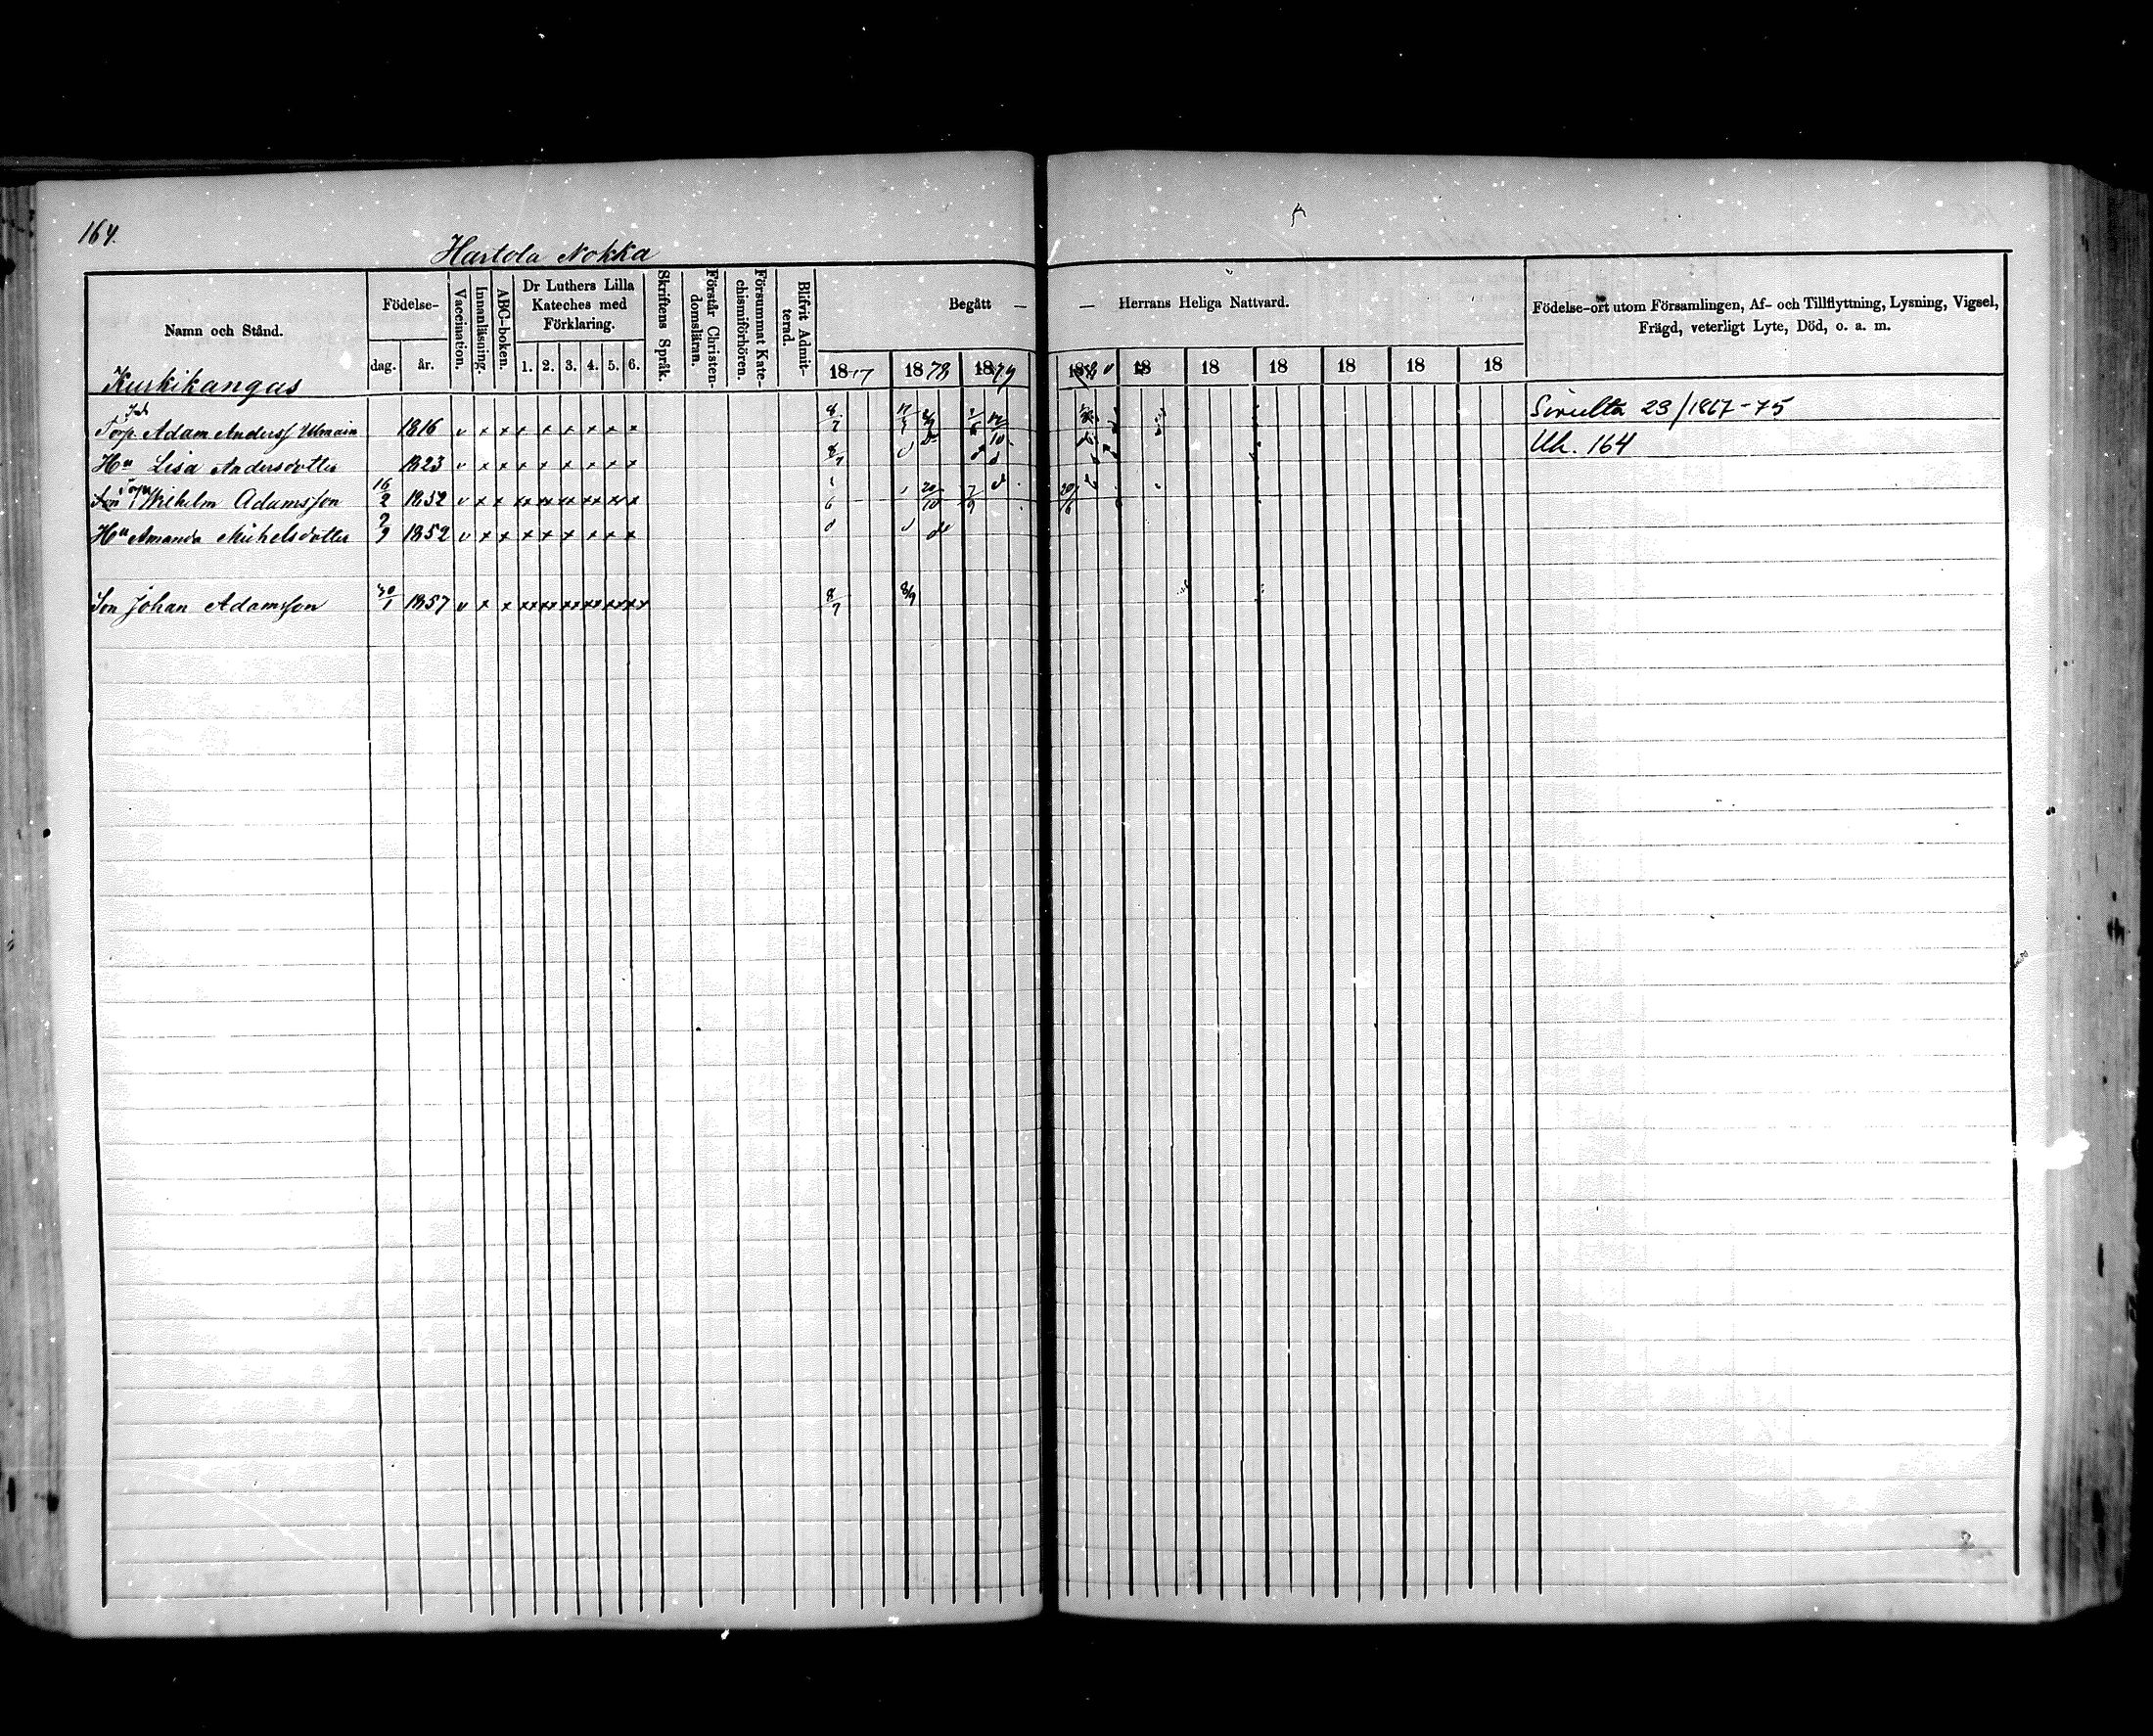 164.
Hartola Nokka
Namn och Stånd.
Födelse-
dag.
år.
Vaccination.
Innanläsning.
ABC-boken.
Dr Luthers Lilla
Kateches med
Förklaring.
1. 2. 3. 4. 5. 6.
Skriftens Språk.
Förstår Christen-
domsläran.
Försummat Kate-
chismiförhören.
Blifvit Admit-
terad.
Begått — — Herrans Heliga Nattvard.
18 18 78 18 79 18 18 18 18 18 18 18
Födelse-ort utom Församlingen, Af- och Tillflyttning, Lysning, Vigsel,
Frägd, veterligt Lyte, Död, o. a. m.
Kurkikangas
Torp. Adam Anderss 1816 v x x x x x x x x 8/7
23/1867-75
Hu Lisa Andersdotter 1823 v x x x x x x x x 8/7
Uk. 164
Son Torp Wilhelm Adamsson 16/2 1852 v x x xx xx xx xx xx x 20/10 7/9 20/6
Hu Amanda Michelsdotter 1852 v x x x x x x x x
Son Johan Adamsson 30/1 1857 v x x xx xx xx xx xx xx 8/7 8/9